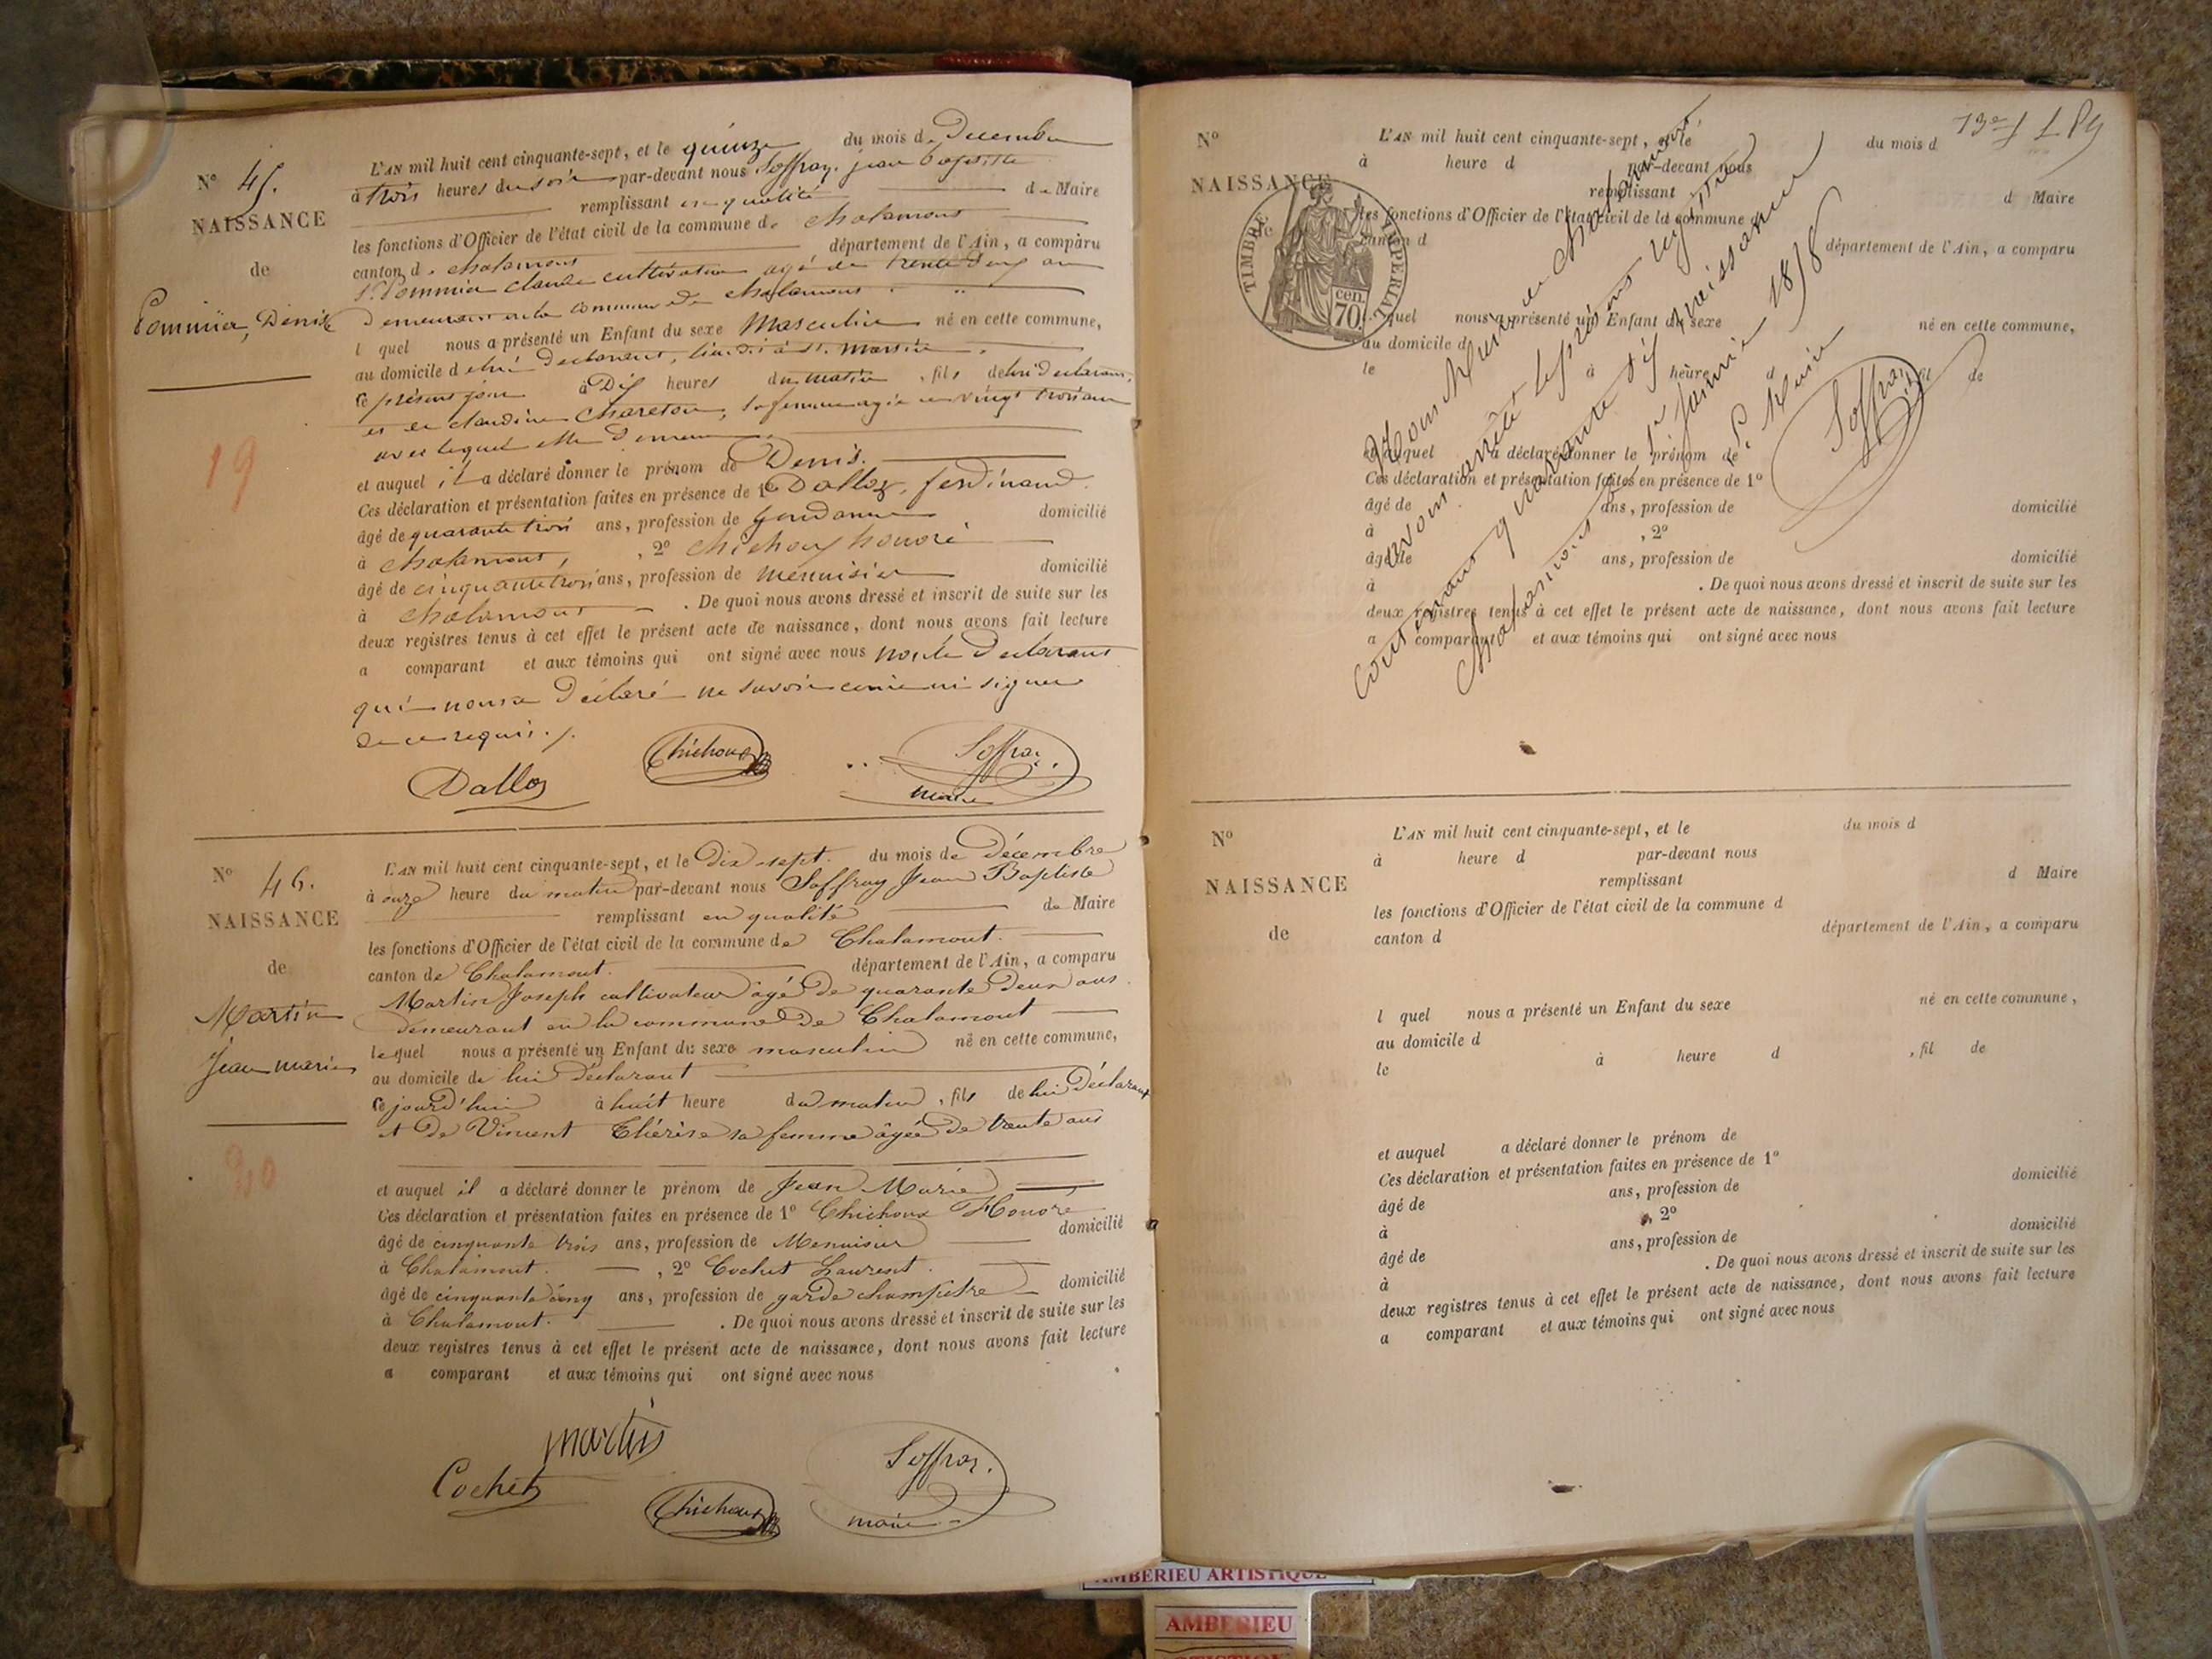 N° 45.
NAISSANCE
de
Pommier, Denis
19
L'AN mil huit cent cinquante-sept, et le quinze du mois de Décembre
à trois heures du soir par-devant nous Soffray, jean baptiste
remplissant en qualité de Maire
les fonctions d'Officier de l'état civil de la commune de chalamont
canton de chalamont département de l'Ain, a comparu
Sr Pommier claude cultivateur agé de trente deux ans
Demeurant en la commune de chalamont
l quel nous a présenté un Enfant du sexe Masculin né en cette commune,
au domicile de lui Declarant, lieu dit à St. Martin,
ce présent jour à Dix heures du matin, fils de lui déclarant,
et de claudine Chareton, sa femme agée de vingt trois ans
avec lequel elle Demeure,
et auquel il a déclaré donner le prénom de Denis.
Ces déclaration et présentation faites en présence de 1° Dalloz, ferdinand.
âgé de quarante trois ans, profession de domicilié
à chalamont, , 2° chichoux honoré
âgé de cinquante trois ans, profession de Menuisier domicilié
à chalamont . De quoi nous avons dressé et inscrit de suite sur les
deux registres tenus à cet effet le présent acte de naissance, dont nous avons fait lecture
a comparant et aux témoins qui ont signé avec nous non le Declarant
qui nous a Déclaré ne savoir écrire ni signer
de ce requis ./.
Dalloz
Chichoux
Soffray
maire
N° 46.
NAISSANCE
de
Martin
Jean marie
20
L'AN mil huit cent cinquante-sept, et le Dix sept. du mois de Décembre
à onze heure du matin par-devant nous Soffray Jean Baptiste
remplissant en qualité de Maire
les fonctions d'Officier de l'état civil de la commune de Chalamont.
canton de Chalamont. département de l'Ain, a comparu
Martin Joseph cultivateur âgé de quarante Deux ans
demeurant en la commune de Chalamont
lequel nous a présenté un Enfant du sexe masculin né en cette commune,
au domicile de lui Déclarant
ce jourd'hui à huit heure du matin, fils de lui Déclarant
et de Vincent Thérèse sa femme âgée de trente ans
et auquel il a déclaré donner le prénom de Jean Marie
Ces déclaration et présentation faites en présence de 1° Chichoux Honoré
âgé de cinquante trois ans, profession de Menuisier domicilié
à Chalamont. , 2° Cochet Laurent.
âgé de cinquante cinq ans, profession de garde champêtre domicilié
à Chalamont. . De quoi nous avons dressé et inscrit de suite sur les
deux registres tenus à cet effet le présent acte de naissance, dont nous avons fait lecture
a comparant et aux témoins qui ont signé avec nous
martin
Cochet
Chichoux
Soffray.
maire
N°
NAISSANCE
de
TIMBRE IMPERIAL
cen. 70
L'AN mil huit cent cinquante-sept, et le du mois d
à heure d par-devant nous
remplissant d Maire
les fonctions d'Officier de l'état civil de la commune d
canton d département de l'Ain, a comparu
l quel nous a présenté un Enfant du sexe né en cette commune,
au domicile d
le à heure d , fil de
et auquel a déclaré donner le prénom de
Ces déclaration et présentation faites en présence de 1°
âgé de ans, profession de domicilié
à , 2°
âgé de ans, profession de domicilié
à . De quoi nous avons dressé et inscrit de suite sur les
deux registres tenus à cet effet le présent acte de naissance, dont nous avons fait lecture
a comparant et aux témoins qui ont signé avec nous
Nous Maire de Chalamont,
avons arrêté le présent registre
contenant quarante six naissances
Chalamont le 1er janvier 1858
Le Maire
Soffray
N°
NAISSANCE
de
L'AN mil huit cent cinquante-sept, et le du mois d
à heure d par-devant nous
remplissant d Maire
les fonctions d'Officier de l'état civil de la commune d
canton d département de l'Ain, a comparu
l quel nous a présenté un Enfant du sexe né en cette commune,
au domicile d
le à heure d , fil de
et auquel a déclaré donner le prénom de
Ces déclaration et présentation faites en présence de 1°
âgé de ans, profession de domicilié
à , 2°
âgé de ans, profession de domicilié
à . De quoi nous avons dressé et inscrit de suite sur les
deux registres tenus à cet effet le présent acte de naissance, dont nous avons fait lecture
a comparant et aux témoins qui ont signé avec nous
AMBERIEU ARTISTIQUE
AMBERIEU
ARTISTIQUE